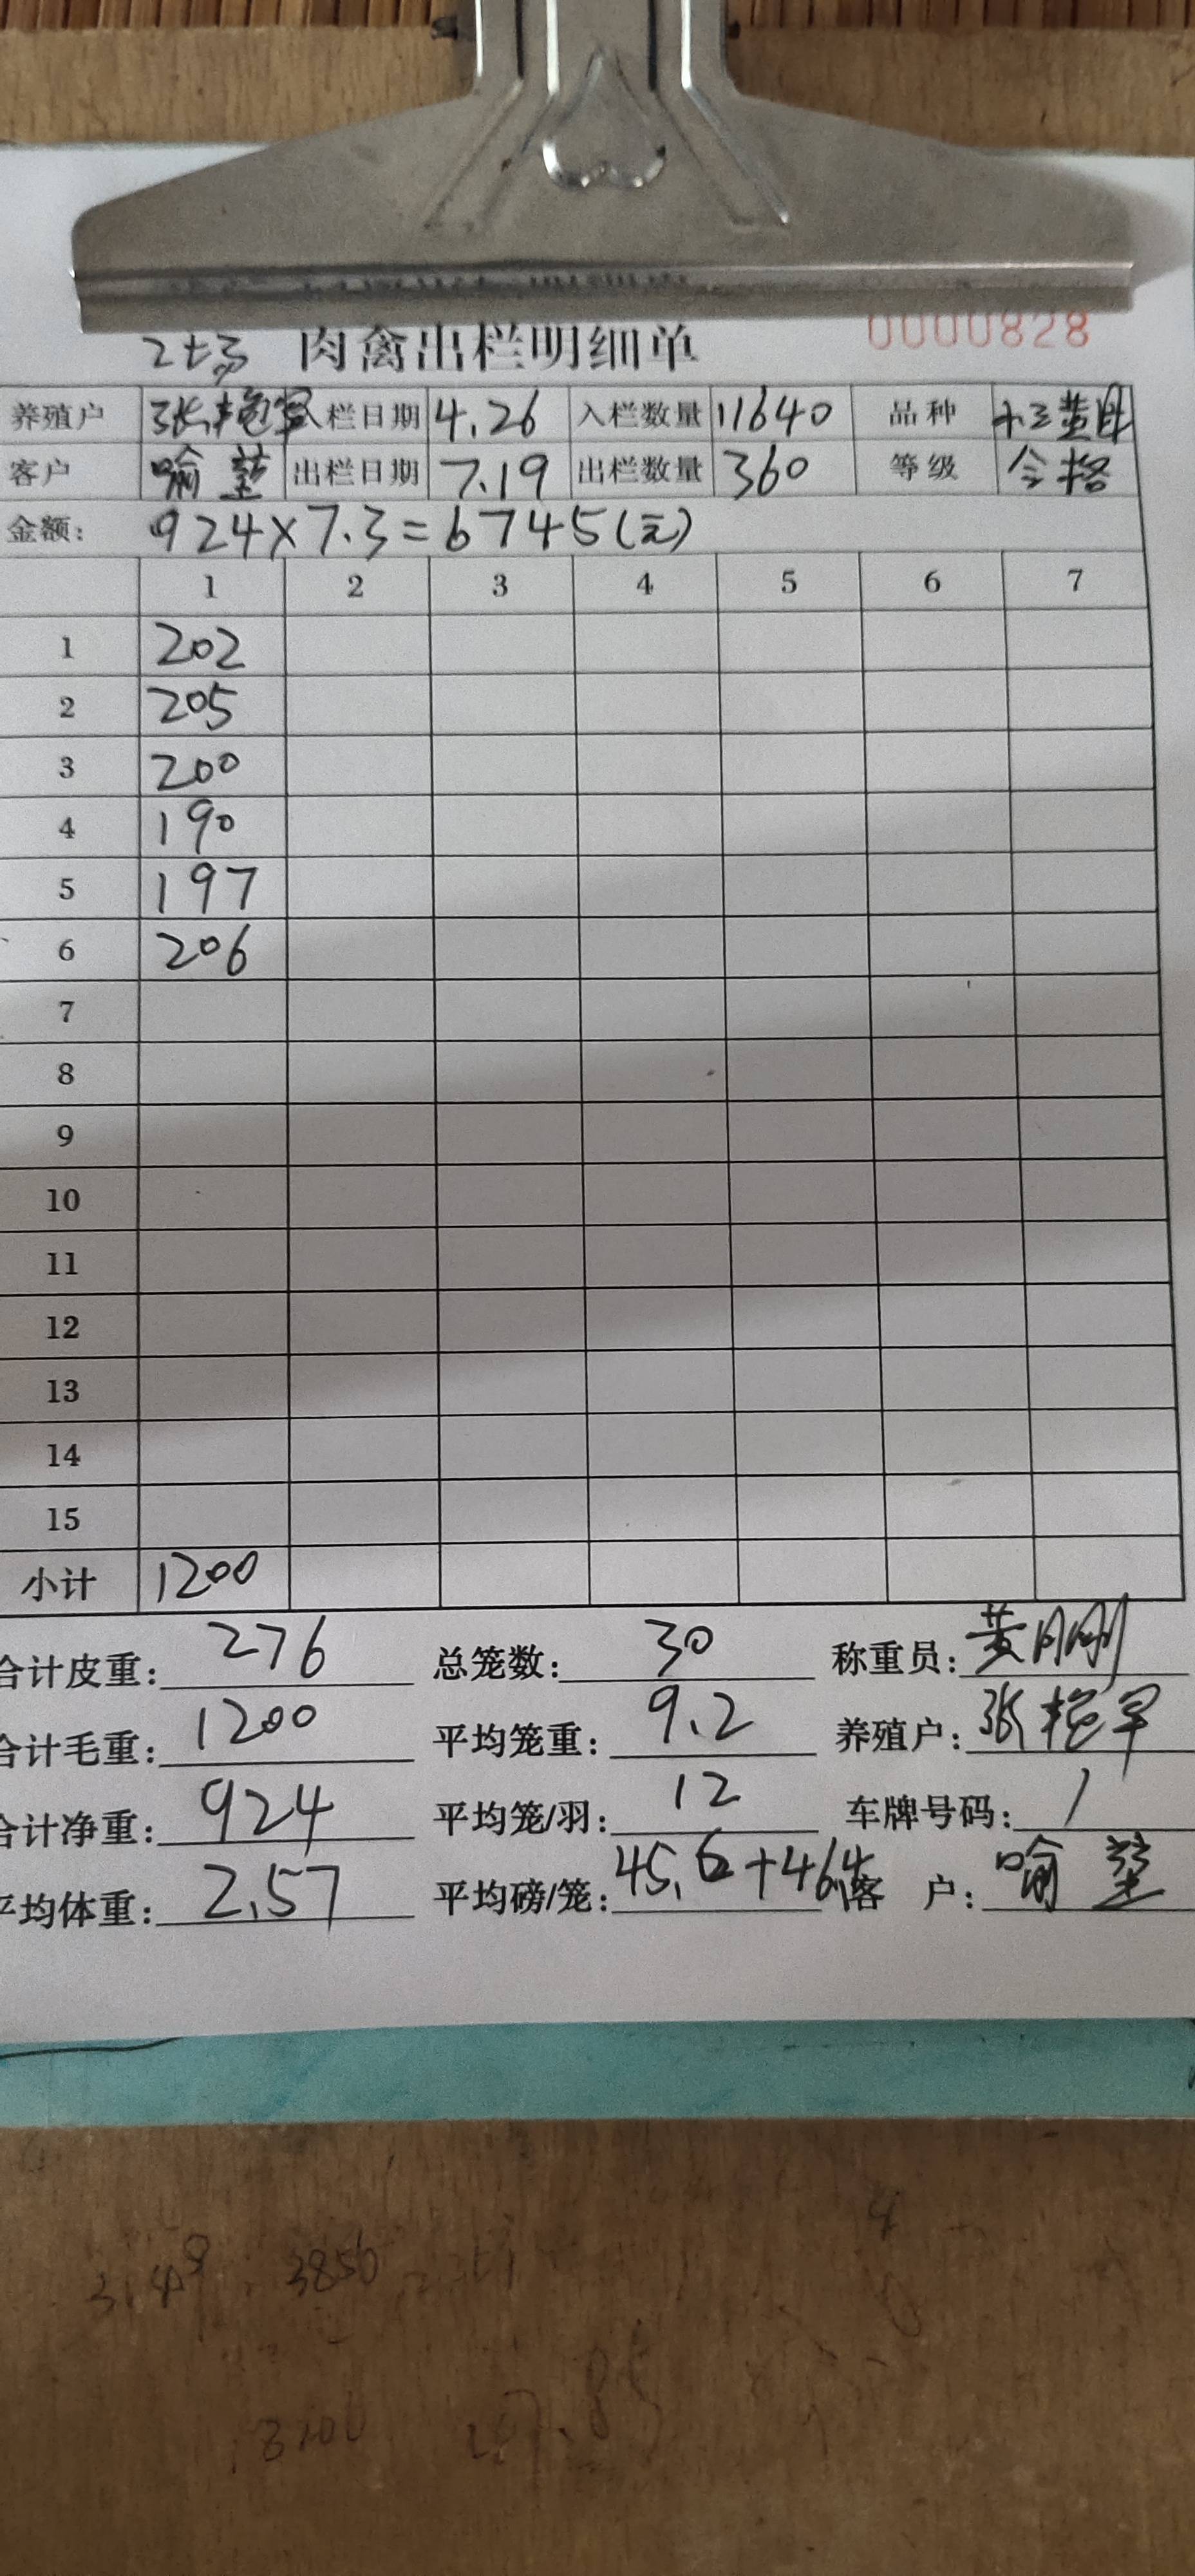 肉禽出栏明细单 0000828
养殖户 张艳军 入栏日期 4.26 入栏数量 11640 品种 土三黄母
客户 喻堃 出栏日期 7.19 出栏数量 360 等级 合格
金额: 924×7.3=6745(元)
1 2 3 4 5 6 7
1 202
2 205
3 200
4 190
5 197
6 206
7
8
9
10
11
12
13
14
15
小计 1200
合计皮重: 276 总笼数: 30 称重员: 黄刚
合计毛重: 1200 平均笼重: 9.2 养殖户: 张艳军
合计净重: 924 平均笼/羽: 12 车牌号码: /
平均体重: 2.57 平均磅/笼: 45.6 客 户: 喻堃
3856